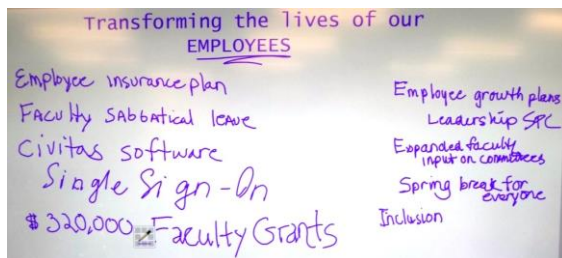 Transforming the lives of our
EMPLOYEES
Employee insurance plan
Faculty Sabbatical leave
Civitas software
Single Sign-On
$320,000 Faculty Grants
Employee growth plans
Leadership SPC
Expanded faculty
input on committees
Spring break for
everyone
Inclusion